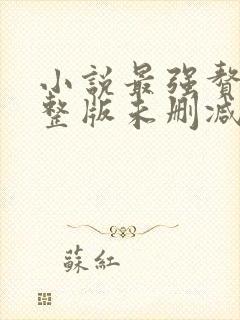 小説最强贅
整版未删减
蘇紅